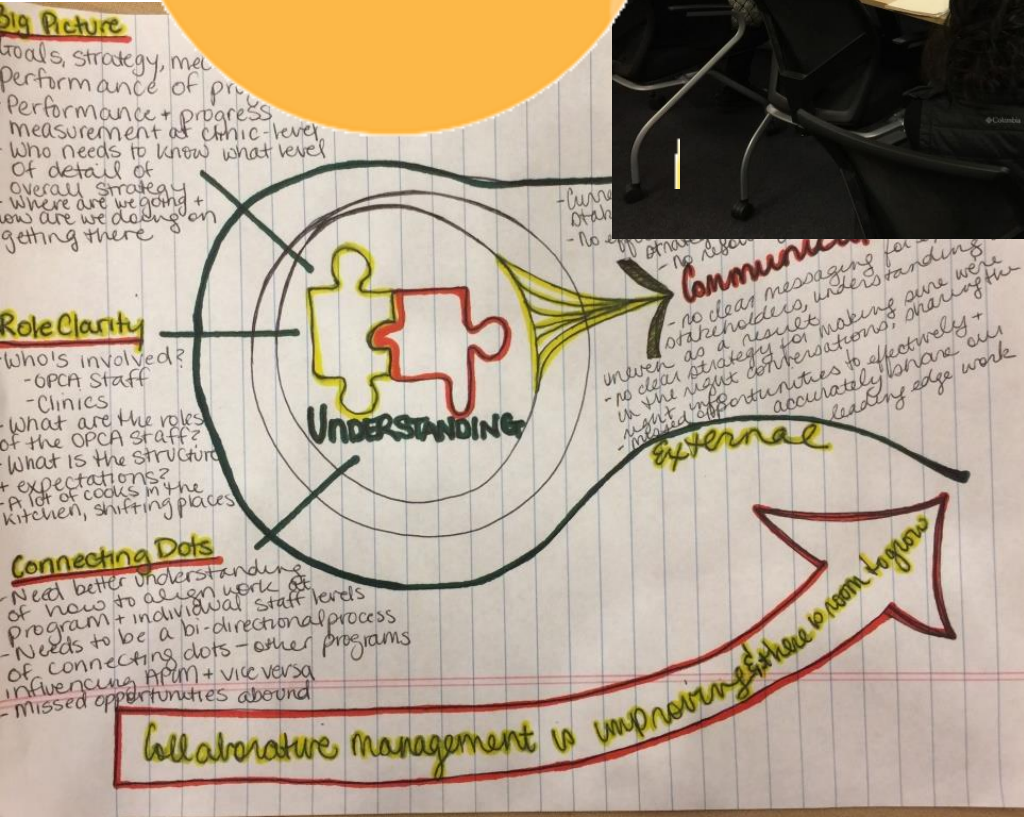 Big Picture
Goals, strategy,
Performance of
Performance + progress
measurement at clinic-level
Who needs to know what level
of detail of
overall strategy
- where are we going +
how are we doing on
getting there
Role Clarity
- Who's involved?
- OPCA Staff
- Clinics
- What are the roles
of the OPCA Staff?
- What is the structure
+ expectations?
- A lot of cooks in the
kitchen, shifting places
Connecting Dots
- Need better understanding
of how to align work at
program + individual staff levels
- Needs to be a bi-directional process
of connecting dots - other programs
influencing APCM + vice versa
- missed opportunities abound
UNDERSTANDING
- no clear messaging for
stakeholders, understanding
uneven as a result
- no clear strategy for making sure we're
in the right conversations, sharing the
right info
- missed opportunities to effectively +
accurately share our
leading edge work
External
Collaborative management is improving & there is room to grow
Columbia